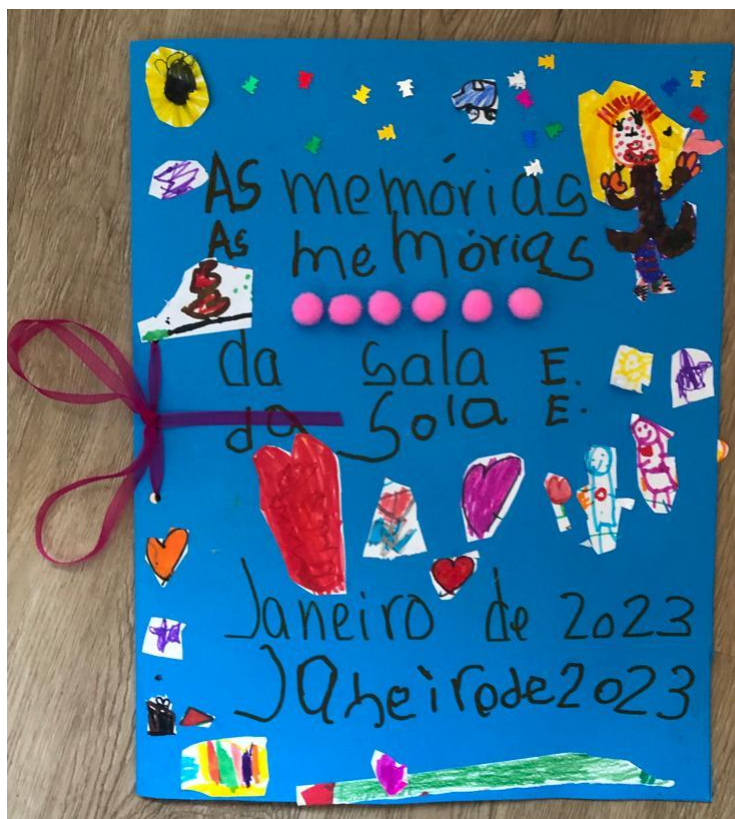 As memórias
As memórias
da sala E.
da Sola E.
Janeiro de 2023
Janeiro de 2023